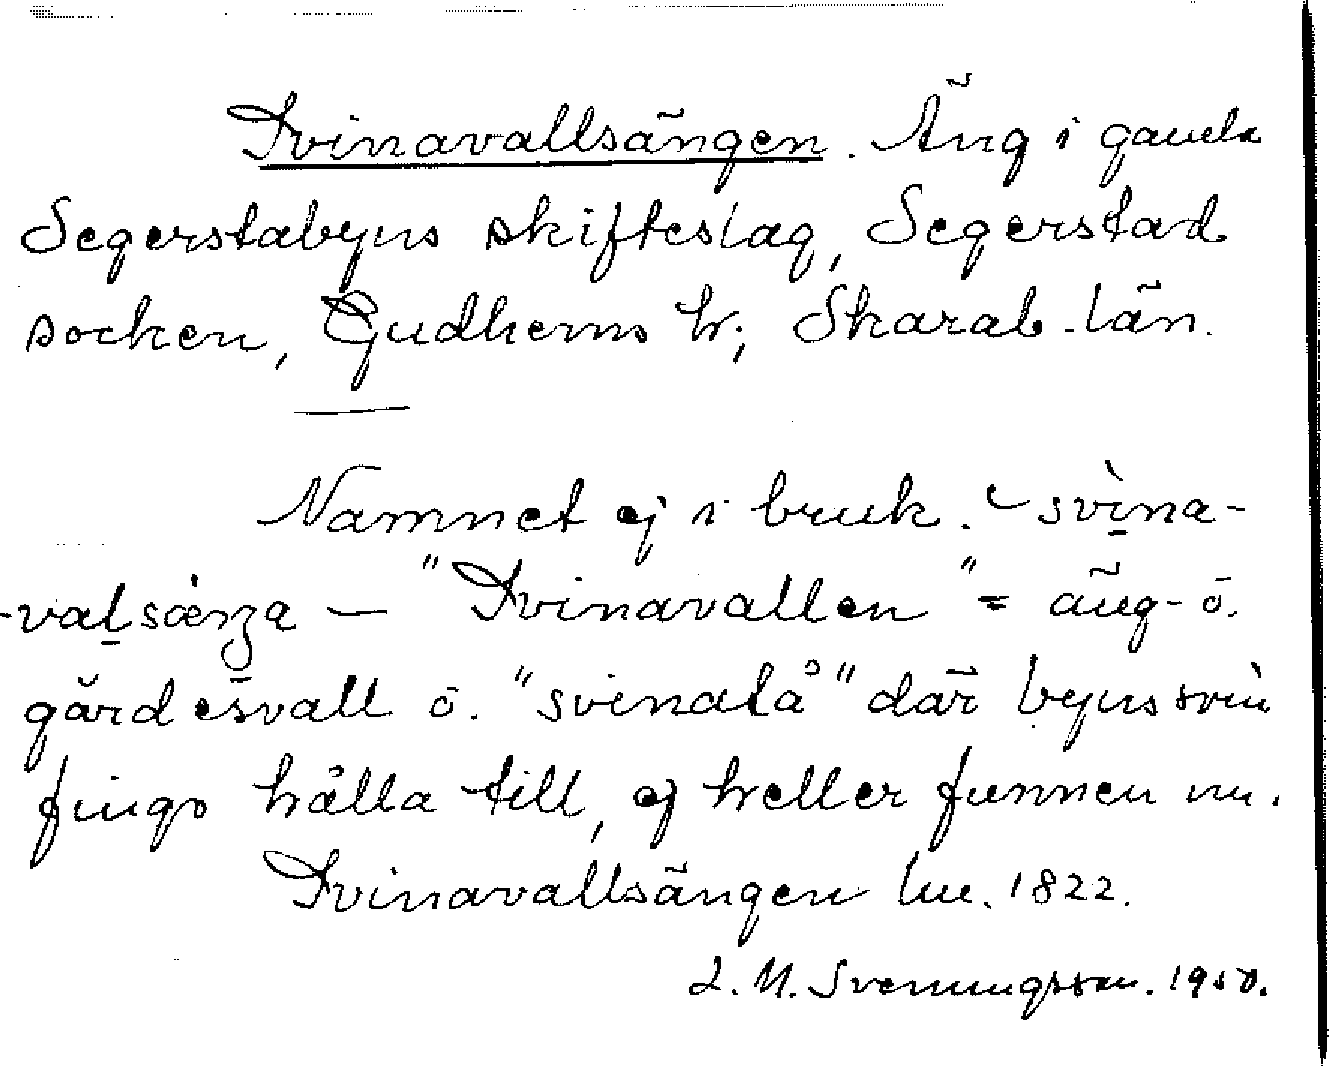 Svinavallsängen. Äng i gamla
Segerstabyns skifteslag, Segerstad
socken, Gudhems h:, Skarab. län.
Namnet ej i bruk. svìna-
-valsæŋa — "Svinavallen" = äng- o.
gärdesvall o. "svinatå" där byns svin
fingo hålla till, ej heller funnen nu.
Svinavallsängen lm. 1822.
L. M. Svenungsson. 1950.